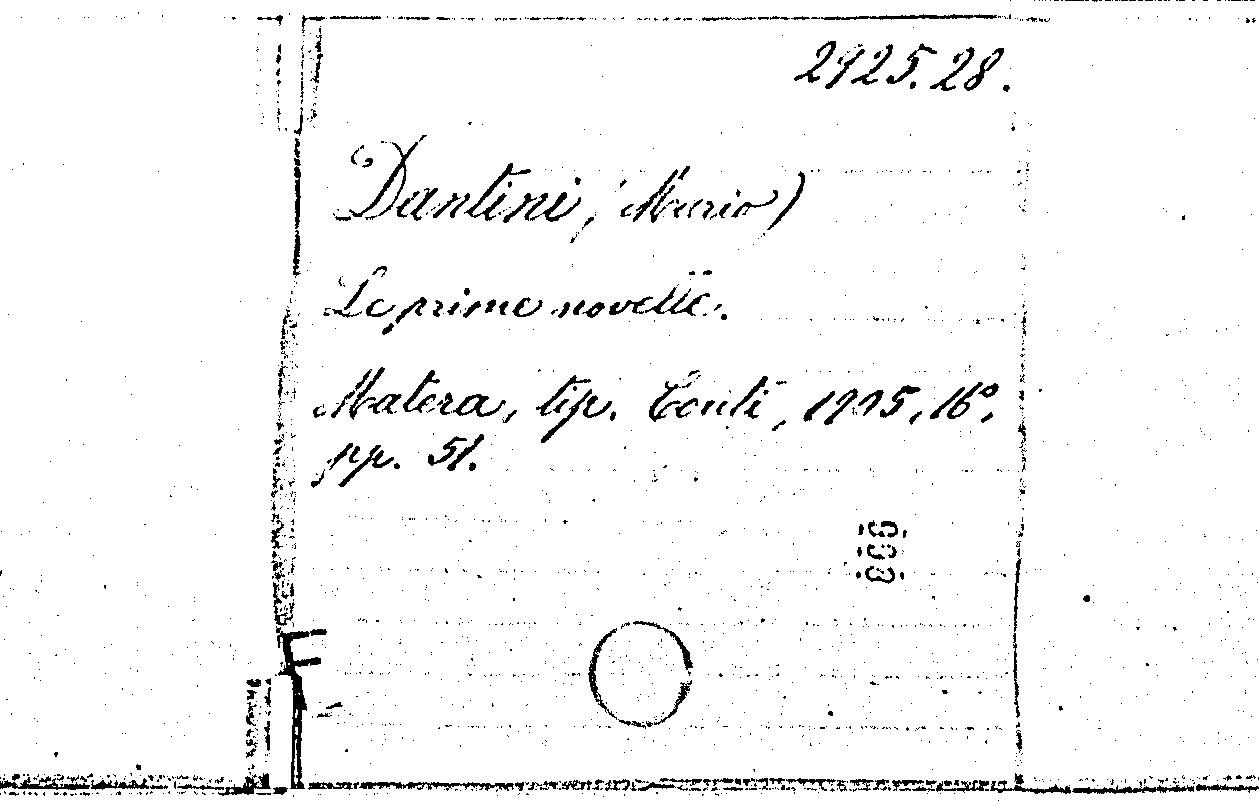 2925.28.
Dantini, (Mario)
Le prime novelle.
Matera, tip. Conti, 1905, 16°,
pp. 51.